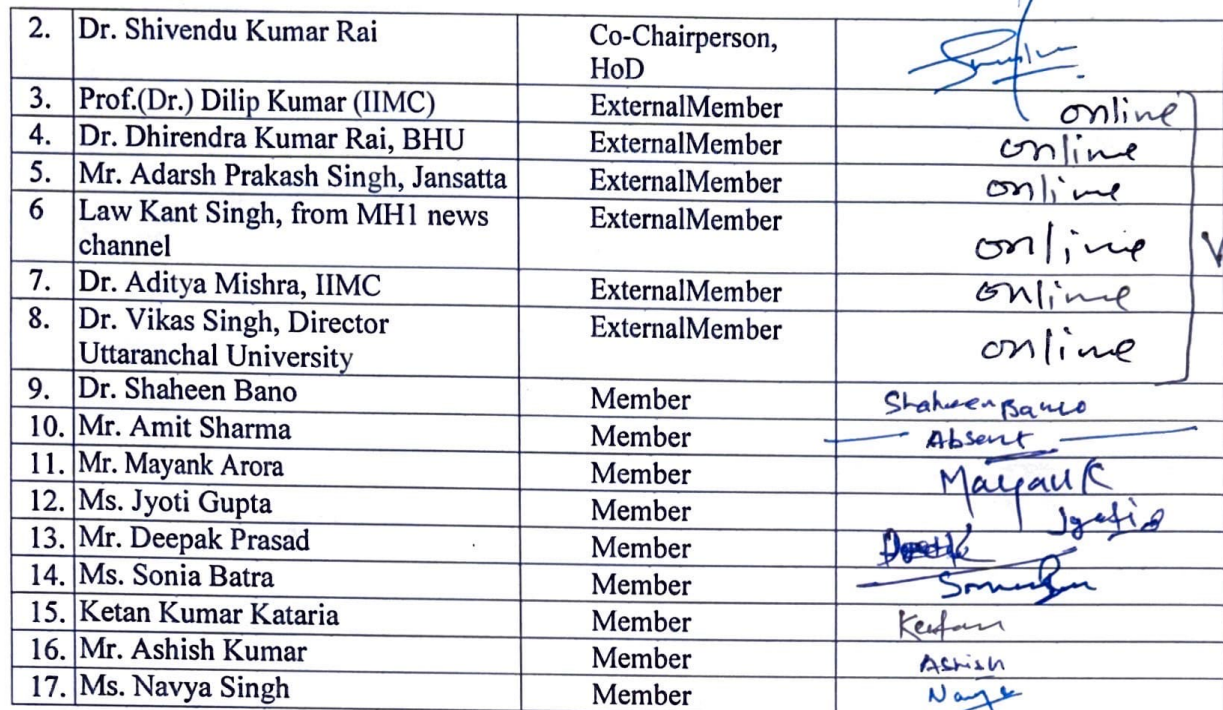 2. Dr. Shivendu Kumar Rai Co-Chairperson,
HoD
3. Prof.(Dr.) Dilip Kumar (IIMC) ExternalMember online
4. Dr. Dhirendra Kumar Rai, BHU ExternalMember online
5. Mr. Adarsh Prakash Singh, Jansatta ExternalMember online
6 Law Kant Singh, from MH1 news ExternalMember online
channel
7. Dr. Aditya Mishra, IIMC ExternalMember online
8. Dr. Vikas Singh, Director ExternalMember online
Uttaranchal University
9. Dr. Shaheen Bano Member Shaheen Bano
10. Mr. Amit Sharma Member Absent
11. Mr. Mayank Arora Member Mayank
12. Ms. Jyoti Gupta Member Jyoti
13. Mr. Deepak Prasad Member
14. Ms. Sonia Batra Member
15. Ketan Kumar Kataria Member Ketan
16. Mr. Ashish Kumar Member Ashish
17. Ms. Navya Singh Member Navya